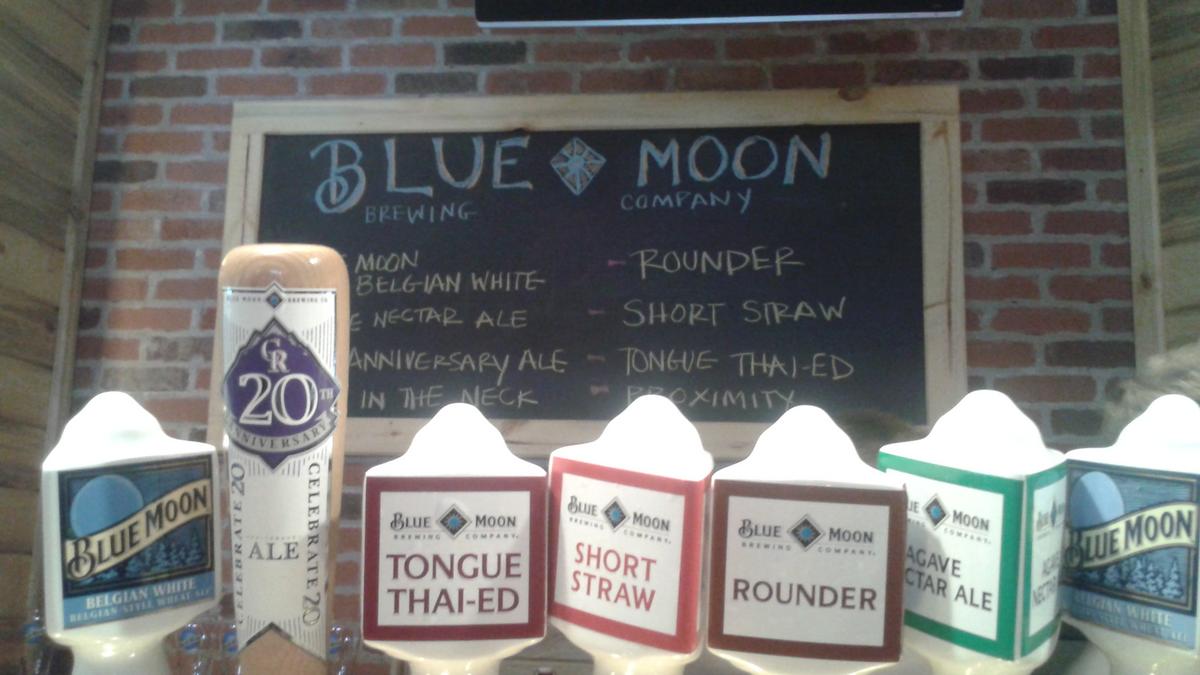 BLUE MOON
BREWING COMPANY
MOON
BELGIAN WHITE
NECTAR ALE
ANNIVERSARY ALE
IN THE NECK
- ROUNDER
- SHORT STRAW
- TONGUE THAI-ED
- PROXIMITY
BLUE MOON
BELGIAN WHITE
BELGIAN-STYLE WHEAT ALE
BLUE MOON BREWING CO.
CR
20TH
ANNIVERSARY
CELEBRATE 20
ALE
CELEBRATE 20
BLUE MOON
BREWING COMPANY
TONGUE
THAI-ED
BLUE MOON
BREWING COMPANY
SHORT
STRAW
BLUE MOON
BREWING COMPANY
ROUNDER
UE MOON
BREWING COMPANY
AGAVE
CTAR ALE
BLUE
AGAV
NECTA
BLUE MOON
BELGIAN WHITE
BELGIAN-STYLE WHEAT ALE